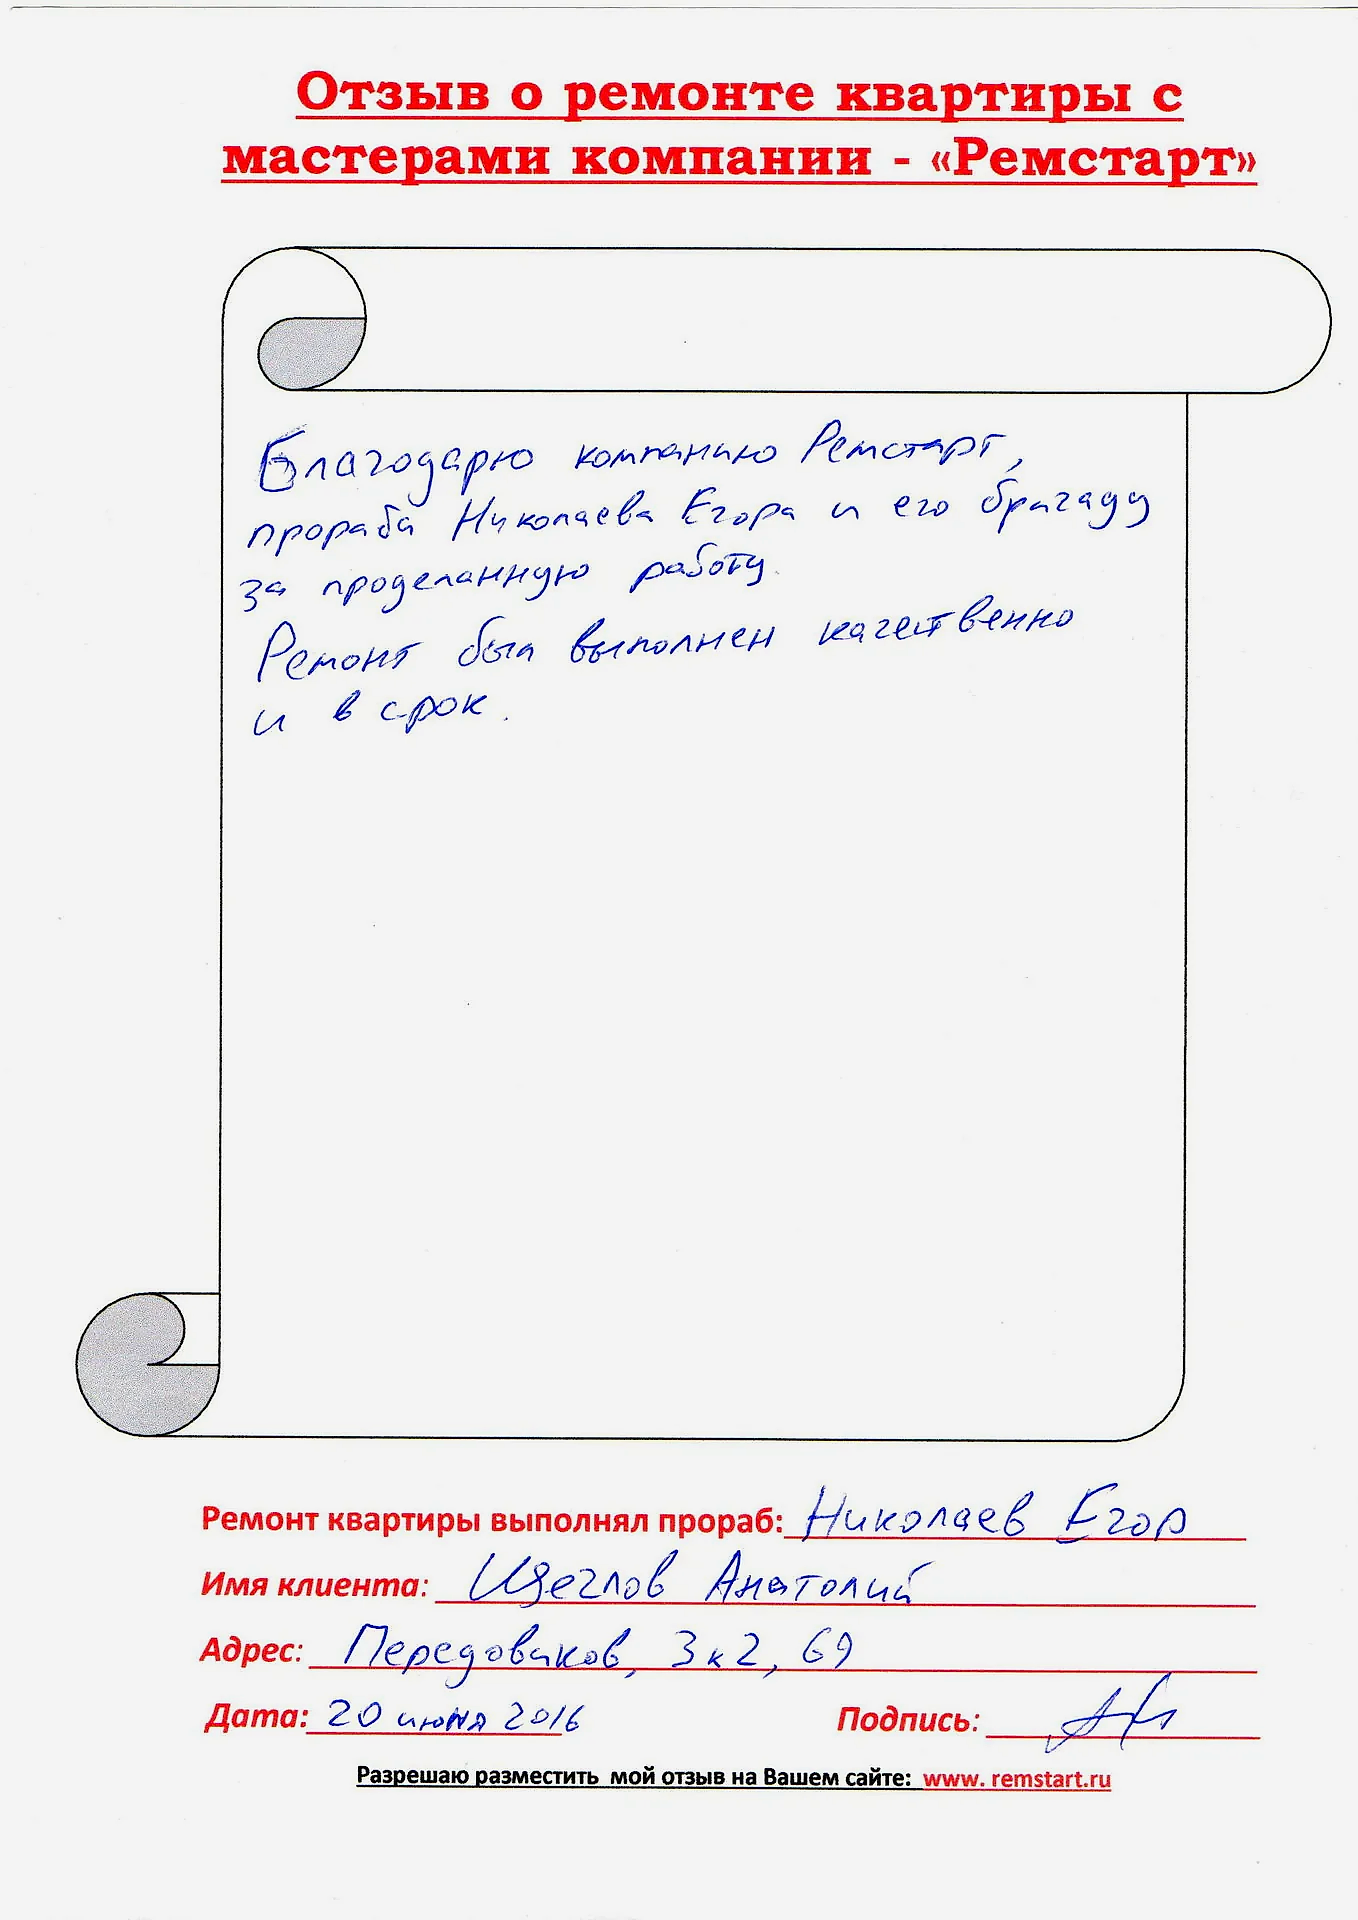 Отзыв о ремонте квартиры с
мастерами компании - «Ремстарт»
Благодарю компанию Ремстарт,
прораба Николаева Егора и его бригаду
за проделанную работу.
Ремонт был выполнен качественно
и в срок.
Ремонт квартиры выполнял прораб: Николаев Егор
Имя клиента: Щеглов Анатолий
Адрес: Передовиков, 3к2, 69
Дата: 20 июня 2016 Подпись:
Разрешаю разместить мой отзыв на Вашем сайте: www. remstart.ru